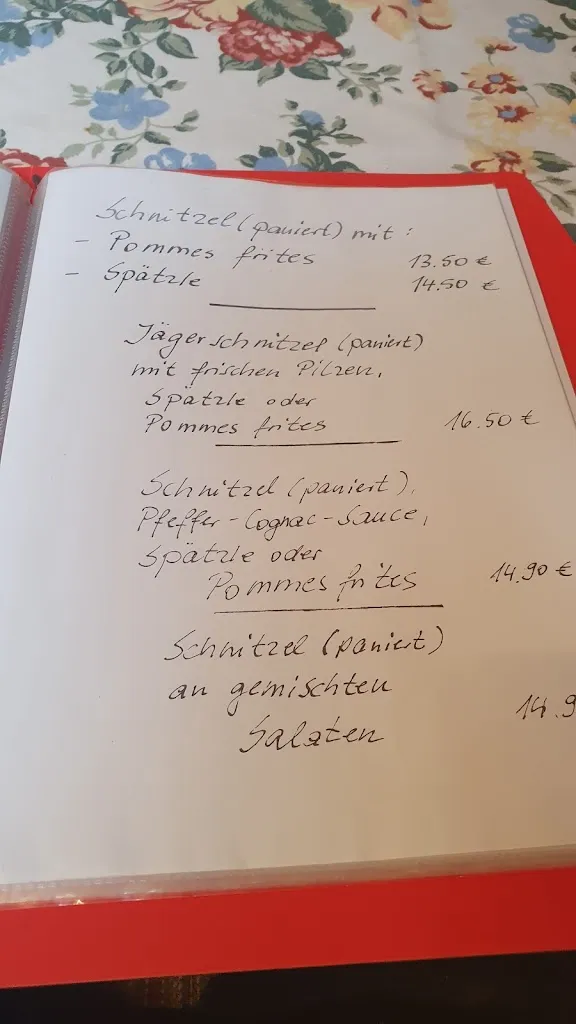 Schnitzel (paniert) mit :
- Pommes frites 13.50 €
- Spätzle 14.50 €
Jägerschnitzel (paniert)
mit frischen Pilzen,
Spätzle oder
Pommes frites 16.50 €
Schnitzel (paniert),
Pfeffer-Cognac-Sauce,
Spätzle oder
Pommes frites 14.90 €
Schnitzel (paniert)
an gemischten
Salaten 14.9